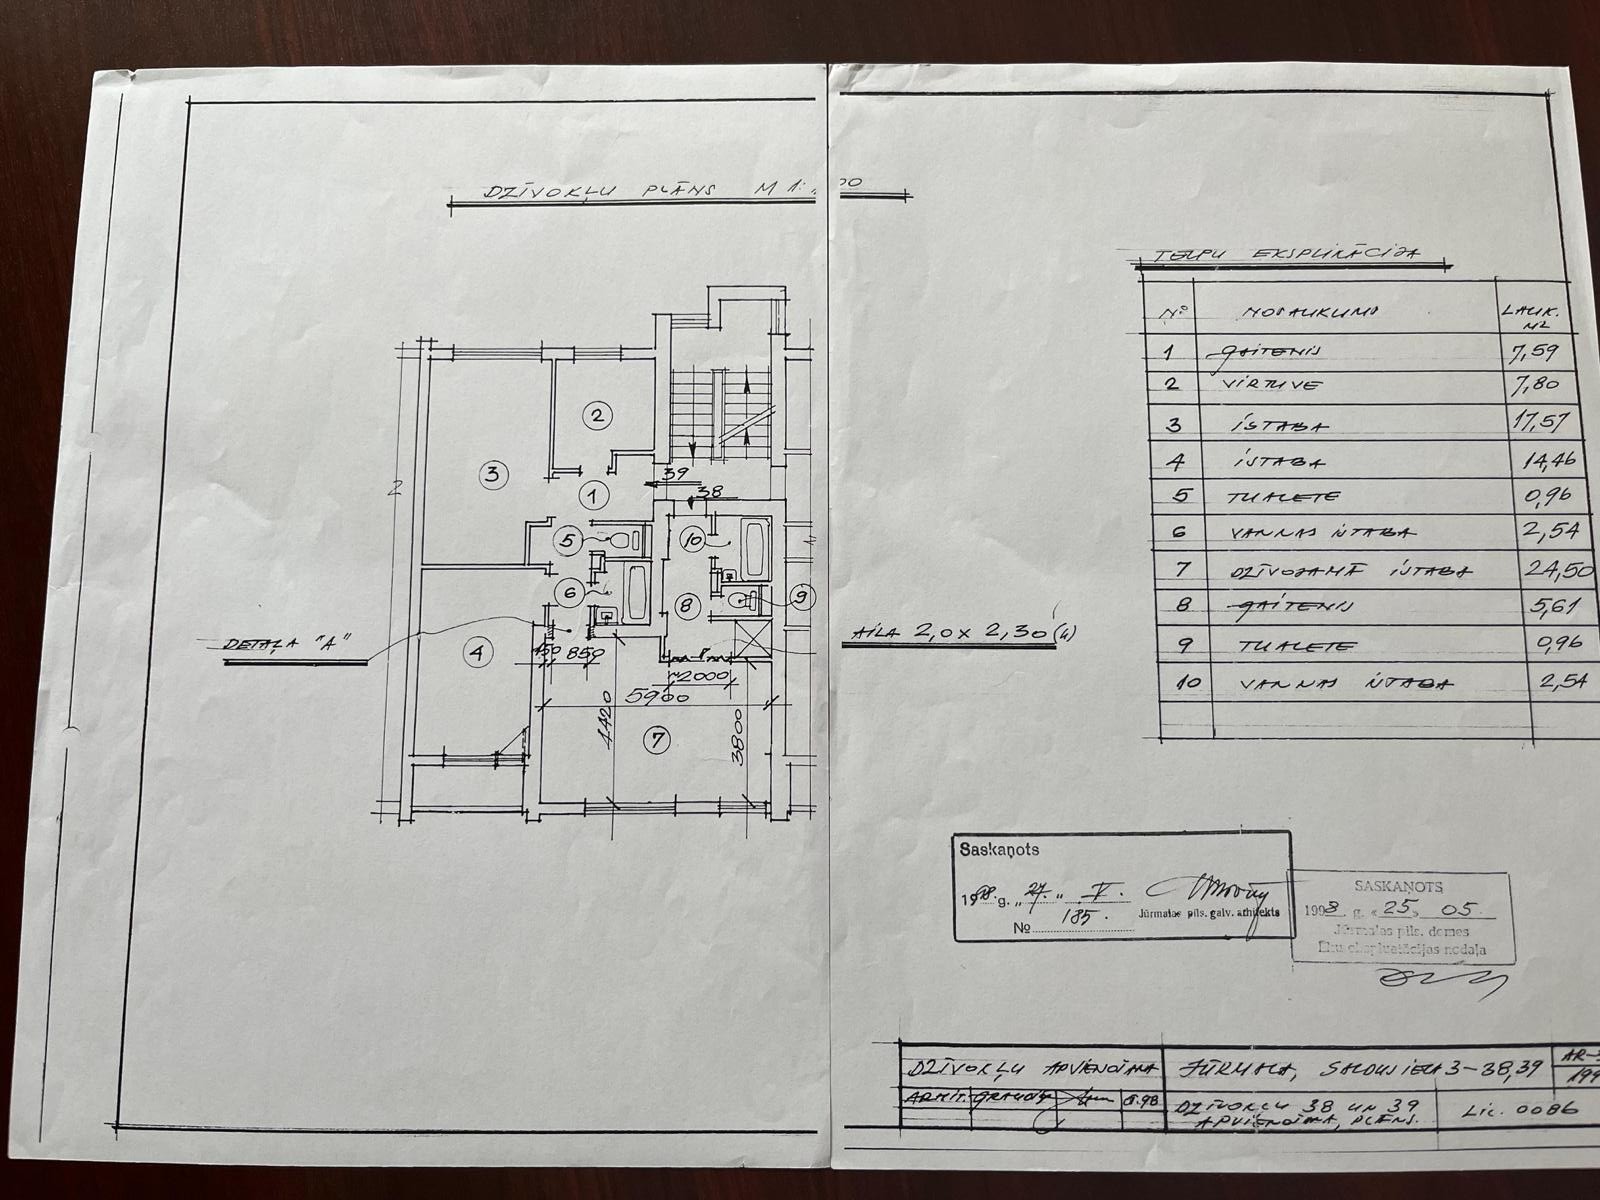 DZĪVOKĻU PLĀNS M 1:
00
TELPU EKSPLIKĀCIJA
Nº NOSAUKUMS LAUK. M2
1 GAITENIS 7,59
2 VIRTUVE 7,80
3 ISTABA 17,57
4 ISTABA 14,46
5 TUALETE 0,96
6 VANNAS ISTABA 2,54
7 DZĪVOJAMĀ ISTABA 24,50
8 GAITENIS 5,61
9 TUALETE 0,96
10 VANNAS ISTABA 2,54
2
3
2
1
39
38
5
10
6
8
9
4
7
DETAĻA "A"
AILA 2,0 x 2,30 (h)
450 850
~2000
5900
4420
3800
Saskaņots
1998. g. „27." V.
Jūrmalas pils. galv. arhitekts
№ 185.
SASKAŅOTS
1998. g. «25» 05.
Jūrmalas pils. domes
Ēku ekspluatācijas nodaļa
DZĪVOKĻU APVIENOŠANA
JŪRMALA, SALDUS IELA 3-38,39
AR-
199
ARHIT.
.98
DZĪVOKĻU 38 UN 39
APVIENOŠANA, PLĀNS.
Lic. 0086